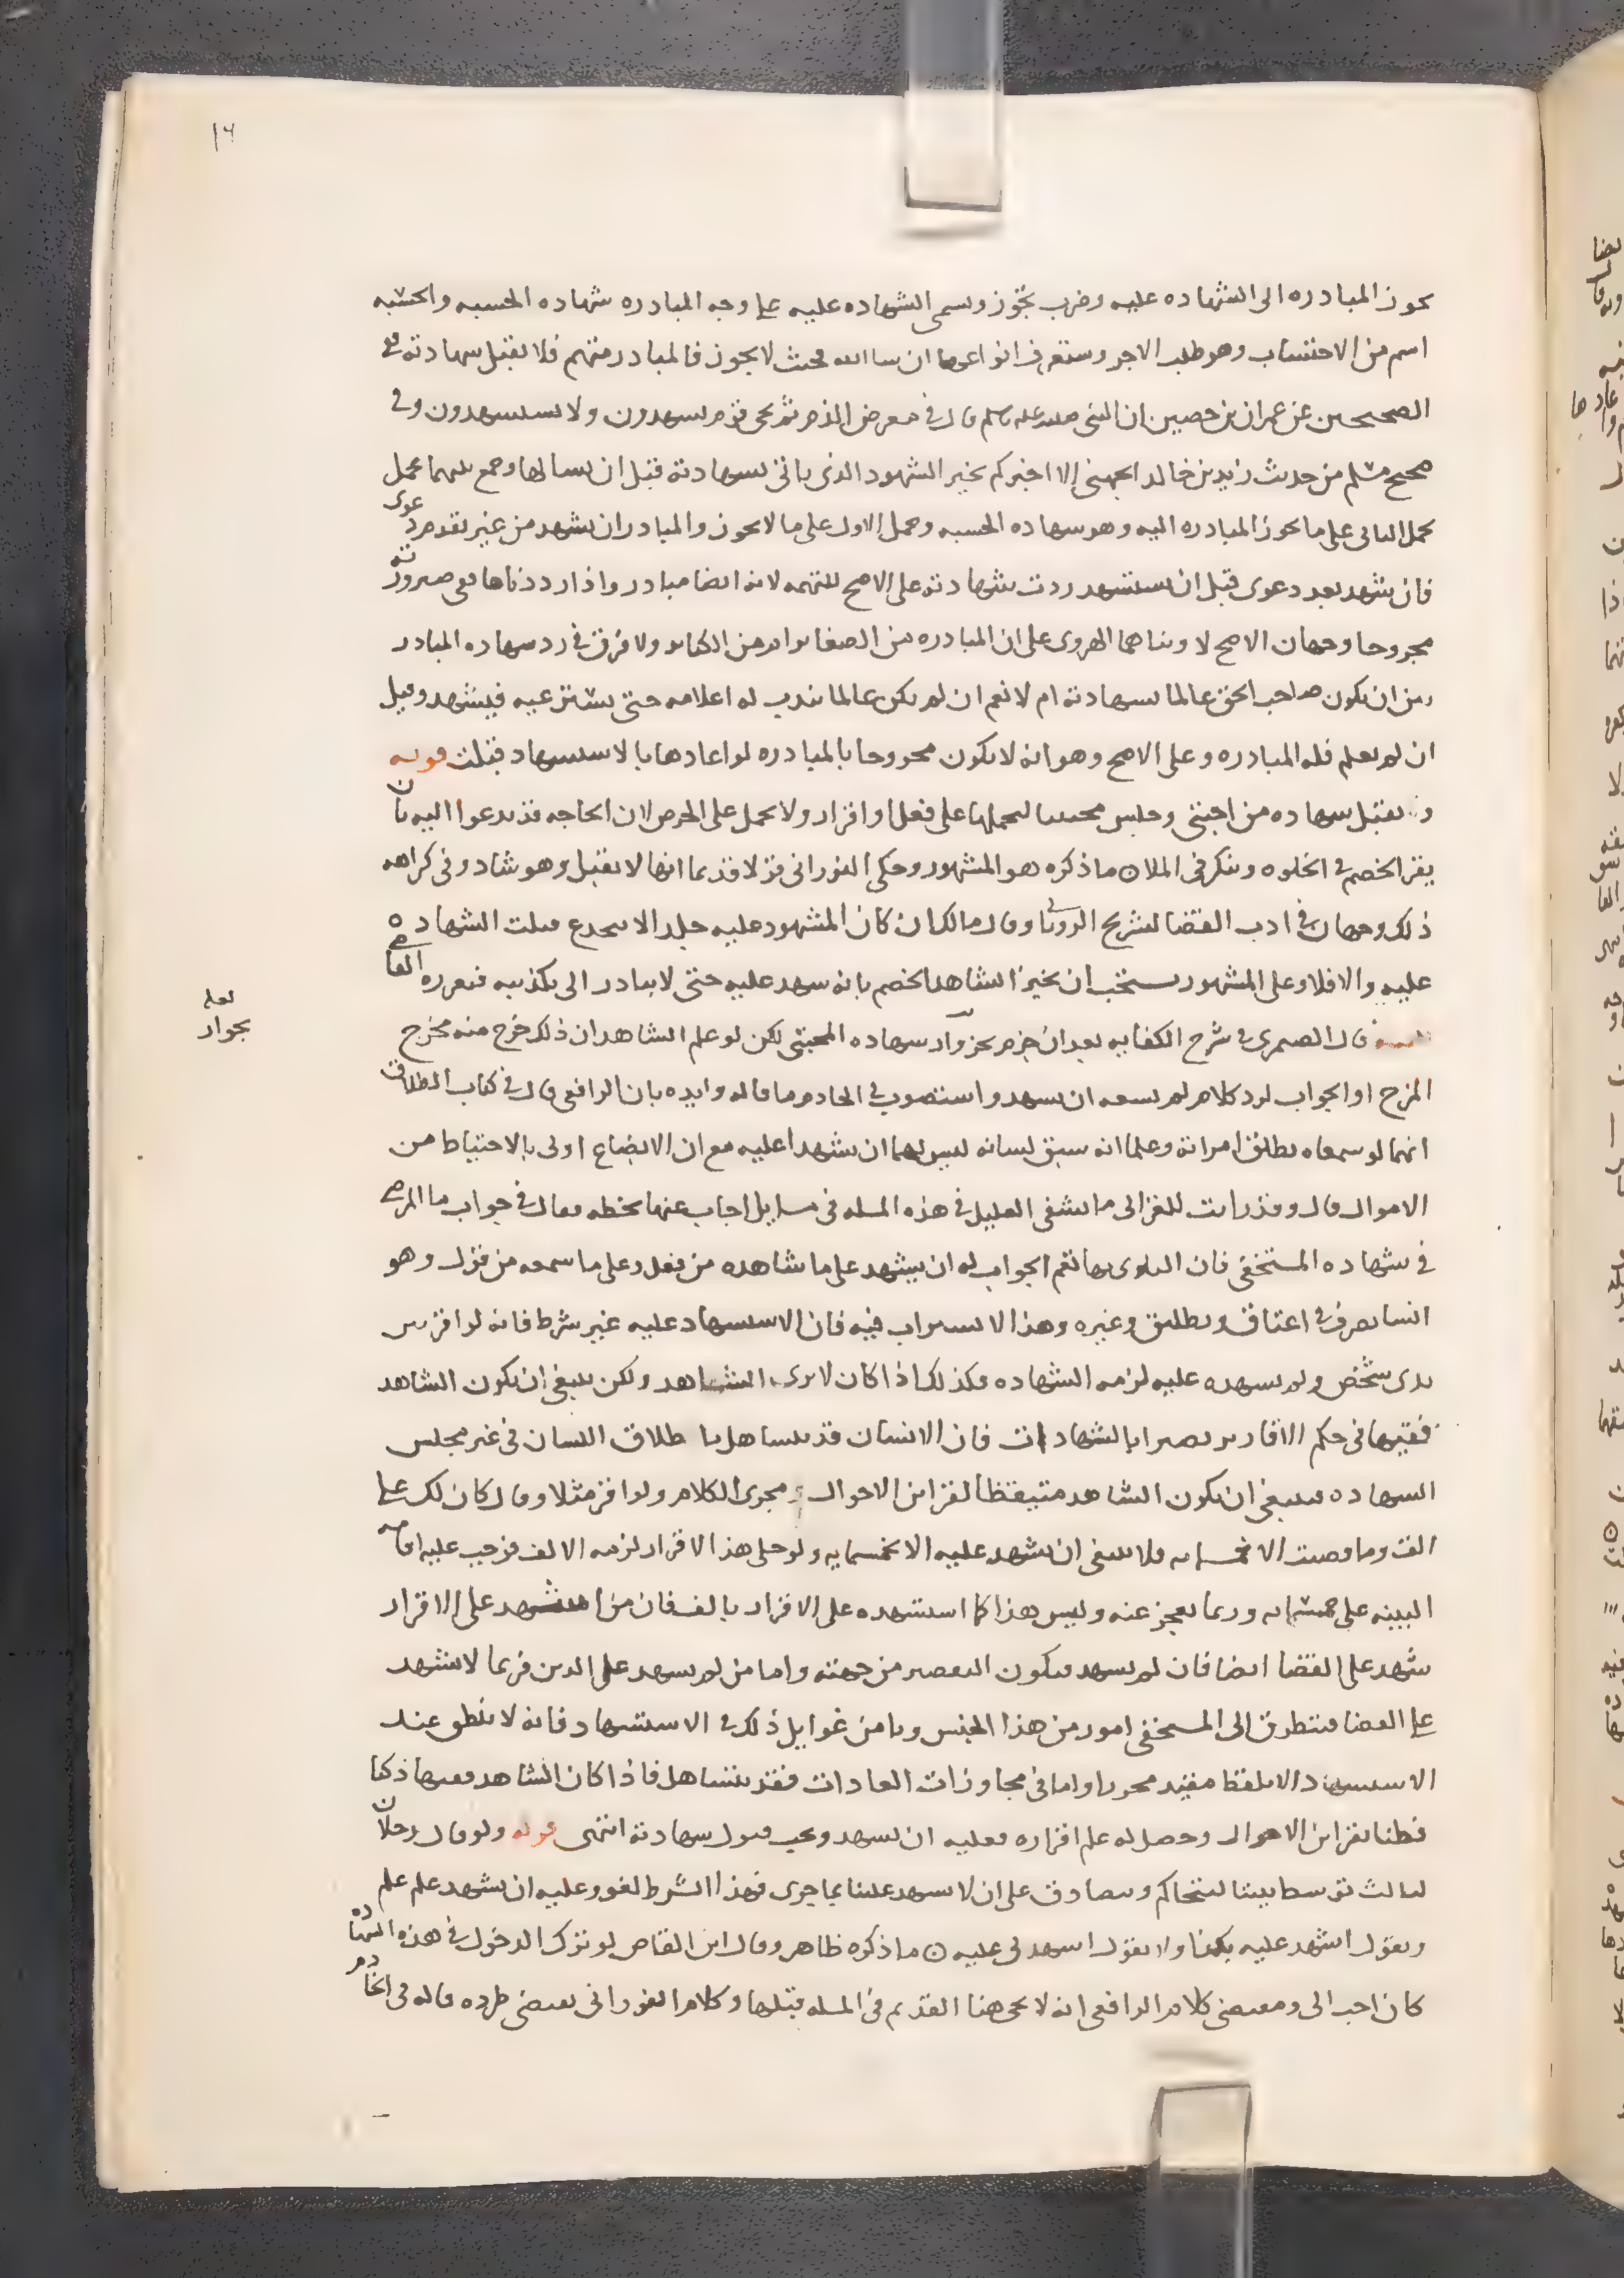 ١٦
تجوز المبادره الى الشهاده عليه وضرب تجوز وسمى الشهاده عليه على وجه المبادره شهاده الحسبه والحسبه
اسم من الاحتساب وهو طلب الاجر وستعرف انواعها ان سا الله فحيث لا يجوز فالمبادر متهم فلا تقبل شهادته ففي
الصحيحين عن عمران بن حصين ان النبي صلى الله عليه وسلم قال في معرض الذم ثم يجي قوم يشهدون ولا يستشهدون وفي
صحيح مسلم من حديث زيد بن خالد الجهني الا اخبركم بخير الشهود الذي ياتي بشهادته قبل ان يسالها وجمع بينهما بحمل
بحمل الثاني على ما تجوز المبادره اليه وهو شهاده الحسبه وحمل الاول على ما لا يجوز والمبادر ان يشهد من غير تقدم دعوى
فان شهد بعد دعوى قبل ان يستشهد ردت شهادته على الاصح للتهمه لانه ايضا مبادر واذا رددناها ففي صيرورته
مجروحا وجهان الاصح لا وبناهما الهروي على ان المبادره من الصغاير او من الكباير ولا فرق في رد شهاده المبادر
بين ان يكون صاحب الحق عالما بشهادته ام لا نعم ان لم يكن عالما يندب له اعلامه حتى يسترعيه فيشهد وقيل
ان لم يعلم فله المبادره وعلى الاصح وهو انه لا يكون مجروحا بالمبادره لو اعادها بالاستشهاد قبلت قوله
وتقبل شهاده من اختبى وجلس محتبيا لتحملها على فعل او اقرار ولا يحمل على الحرص لان الحاجه قد تدعوا اليه بان
يقر الخصم في الخلوه وينكر في الملا ن ما ذكره هو المشهور وحكى الفوراني قولا قديما انها لا تقبل وهو شاذ وفي كراهه
ذلك وجهان في ادب القضا لشريح الروياني وقال مالك ان كان المشهود عليه جلدا لا ينخدع قبلت الشهاده
عليه والا فلا وعلى المشهور يستحب ان يخبر الشاهد الخصم بانه شهد عليه حتى لا يبادر الى تكذيبه فيعزره القاضي
تنبيه قال الصيمري في شرح الكفايه بعد ان جزم بجواز شهاده المختبي لكن لو علم الشاهد ان ذلك خرج منه مخرج
لعله
بجواز
المزح او الجواب لرد كلام لم يسعه ان يشهد واستصوب في الخادم ما قاله وايده بان الرافعي قال في كتاب الطلاق
انهما لو سمعاه يطلق امراته وعلما انه سبق لسانه ليس لهما ان يشهدا عليه مع ان الابضاع اولى بالاحتياط من
الاموال قال وقد رايت للغزالي ما يشفي الغليل في هذه المسله في مسايل اجاب عنها بخطه فقال في جواب ما المرضي
في شهاده المستخفي فان البلوى بها تعم الجواب له ان يشهد على ما شاهده من فعل وعلى ما سمعه من قول وهو
انشا تصرف في اعتاق وتطليق وغيره وهذا لا يستراب فيه فان الاستشهاد عليه غير شرط فانه لو اقر بين
يدي شخص ولم يشهده عليه لزمه الشهاده فكذلك اذا كان لا يرى الشاهد ولكن ينبغي ان يكون الشاهد
فقيها في حكم الاقارير بصيرا بالشهادات فان الانسان قد يتساهل باطلاق اللسان في غير مجلس
الشهاده فينبغي ان يكون الشاهد متيقظا لقراين الاحوال ومجرى الكلام ولو اقر مثلا وقال كان لك علي
الف وما قضيت الا خمسمايه فلا ينبغي ان يشهد عليه الا بخمسمايه ولو حلى هذا الاقرار لزمه الالف فوجب عليه اقامه
البينه على خمسمايه وربما يعجز عنه وليس هذا كما استشهده على الاقرار بالف فان من استشهد على الاقرار
شهد على القضا ايضا فان لم يشهد فيكون التقصير من جهته واما من لم يشهد على الدين فربما لا يشهد
على القضا فيتطرق الى المستخفي امور من هذا الجنس ويامن غوايل ذلك في الاستشهاد فانه لا ينطق عند
الاستشهاد الا بلفظ مقيد محرر واما في مجاوزات العادات فقد يتساهل فاذا كان الشاهد فقيها ذكيا
فطنا بقراين الاحوال وحصل له علم اقراره فعليه ان يشهد ويجب قبول شهادته انتهى قوله ولو قال رجلان
لثالث توسط بيننا لنتحاكم ونتصادق على ان لا تشهد علينا بما جرى فهذا الشرط لغو وعليه ان يشهد علم علم
ويقول اشهد عليه بكذا ولا يقول اشهدني عليه ن ما ذكره ظاهر وقال ابن القاص لو ترك الدخول في هذه الشهاده
كان احب الي ومقتضى كلام الرافعي انه لا يجي هنا القديم في المسله قبلها وكلام الفوراني يقتضي طرده قاله في الخادم